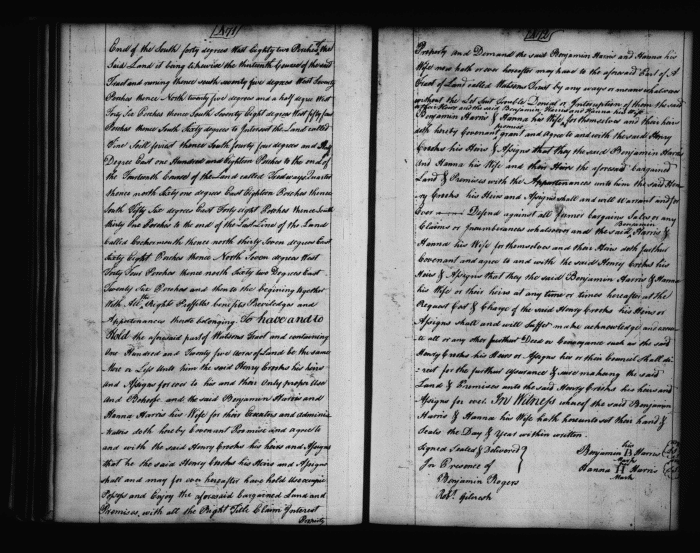 [187]
End of the South forty degrees West Eighty two Perches, the
Said Land it being likewise the thirteenth Course of the said
Tract and runing thence south seventy five degrees West Seventy
Perches thence North twenty five degrees and a half degre West
Forty Six Perches thence South Seventy Eight degrees West fifty four
Perches thence South Sixty degrees to Intersect the Land called
Pine thence South forty four degrees and Half
Degree East one Hundred and Eighteen Perches to the end of
the Fourteenth Course of the Land called
thence north Sixty one degrees East Eighteen Perches thence
South Fifty Six degrees East Forty eight Perches thence South
thirty One Perches to the end of the Last Line of the Land
Called Cockermouth thence north thirty Seven degrees East
Sixty Eight Perches thence North Seven degrees West
Forty Four Perches thence north sixty two Degrees East
Twenty Six Perches and then to the begining together
With All the Right Proffitts benefits Priviledges and
Appertenances thereto belonging. To have and to
Hold the aforesaid part of Watsons Tract and containing
One Hundred and Twenty five Acres of Land be the same
More or Less Unto him the said Henry Crooks his heirs
and Assigns for ever to his and their Only proper Use
and Behoofe and the said Benjamin Harris and
Hanna Harris his Wife for their Executors and Adminis
trators doth hereby Covenant Promise and agree to
and with the said Henry Crooks his heirs and Assigns
that he the said Henry Crooks his Heirs and Assigns
shall and may for ever hereafter have hold Use occupie
Possess and Enjoy the aforesaid bargained Land and
Premises with all the Right Title Claim Interest
Property
[188]
Property and Demand the said Benjamin Harris and Hanna his
Wife now hath or ever hereafter may have to the aforesaid Part of A
Tract of Land called Watsons by any ways or means whatsoever
without the Let Suit Trouble Denial or Interruption of them the said
Benjamin Harris & Hanna his Wife for themselves and their heirs
doth hereby Covenant grant and agree to and with the said Henry
Crooks his Heirs & Assigns that they the said Benjamin Harris
And Hanna his Wife and their Heirs the aforesaid bargained
Land & Premises with the Appertenances unto him the said Hen
ry Crooks his Heirs and Assigns shall and will Warrant and for
Ever Defend against all former bargains Sales or any
Claims or Incumbrances whatsoever and the said Benjamin Harris &
Hanna his Wife for themselves and their Heirs doth further
Covenant and agree to and with the said Henry Crooks his
Heirs & Assigns that they the said Benjamin Harris & Hanna
his Wife or their heirs at any time or times hereafter at the
Request Cost & Charge of the said Henry Crooks his Heirs or
Assigns shall and will Suffer make acknowledge and execute
all or any other further Deed or Conveyance such as the said
Henry Crooks his Heirs or Assigns his or their Council shall di
rect for the further assurance & sure making the said
Land & Premises unto the said Henry Crooks his heirs and
Assigns for ever. In Witness whereof the said Benjamin
Harris & Hanna his Wife hath hereunto set their hand &
Seals the Day & Year within written
Signed Sealed & Delivered
In Presence of
Benjamin Rogers
Robt. Gilcresh
his
Benjamin B Harris
Mark
Hanna H Harris
Mark